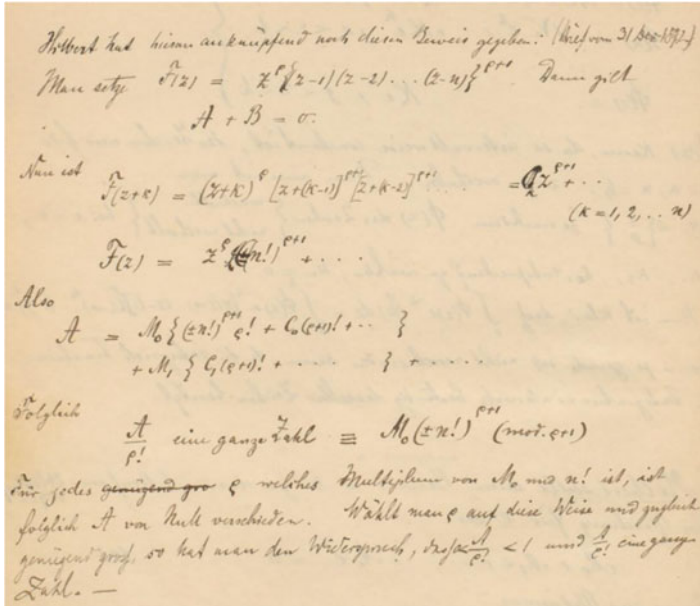 Hilbert hat hieran anknüpfend noch diesen Beweis gegeben: (Brief vom 31 Dec. 1892)
Man setze F(z) = z^ρ {(z-1)(z-2)...(z-n)}^{ρ+1} Dann gilt
A + B = 0.
Nun ist F(z+k) = (z+k)^ρ [z+(k-1)]^{ρ+1} [z+(k-2)]^{ρ+1} = C_k z^{ρ+1} + ..
(k = 1, 2, .. n)
F(z) = z^ρ (±n!)^{ρ+1} + ....
Also
A = M₀ { (±n!)^{ρ+1} ρ! + C₀(ρ+1)! + .. }
+ M₁ { C₁(ρ+1)! + ..... } + .....
Folglich
A/ρ! eine ganze Zahl ≡ M₀(±n!)^{ρ+1} (mod. ρ+1)
Für jedes genügend gro ρ welches Multiplum von M₀ und n! ist, ist
folglich A von Null verschieden. Wählt man ρ auf diese Weise und zugleich
genügend gross, so hat man den Widerspruch, dass A/ρ! < 1 und A/ρ! eine ganze
Zahl. —